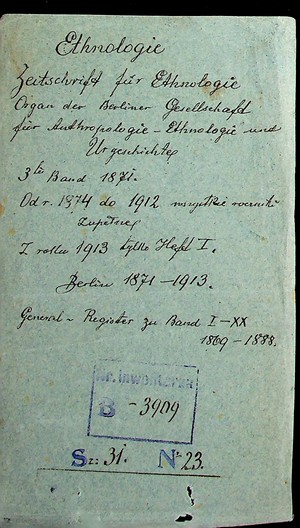 Ethnologie
Zeitschrift für Ethnologie
Organ der Berliner Gesellschaft
für Anthropologie - Ethnologie und
Urgeschichte
3te Band 1871.
Od r. 1874 do 1912 wszystkie roczniki
zupełne
Z roku 1913 tylko Heft I.
Berlin 1871-1913.
General - Register zu Band I-XX
1869-1888.
Nr. inwentarza
B - 3909
Sz: 31. № 23.